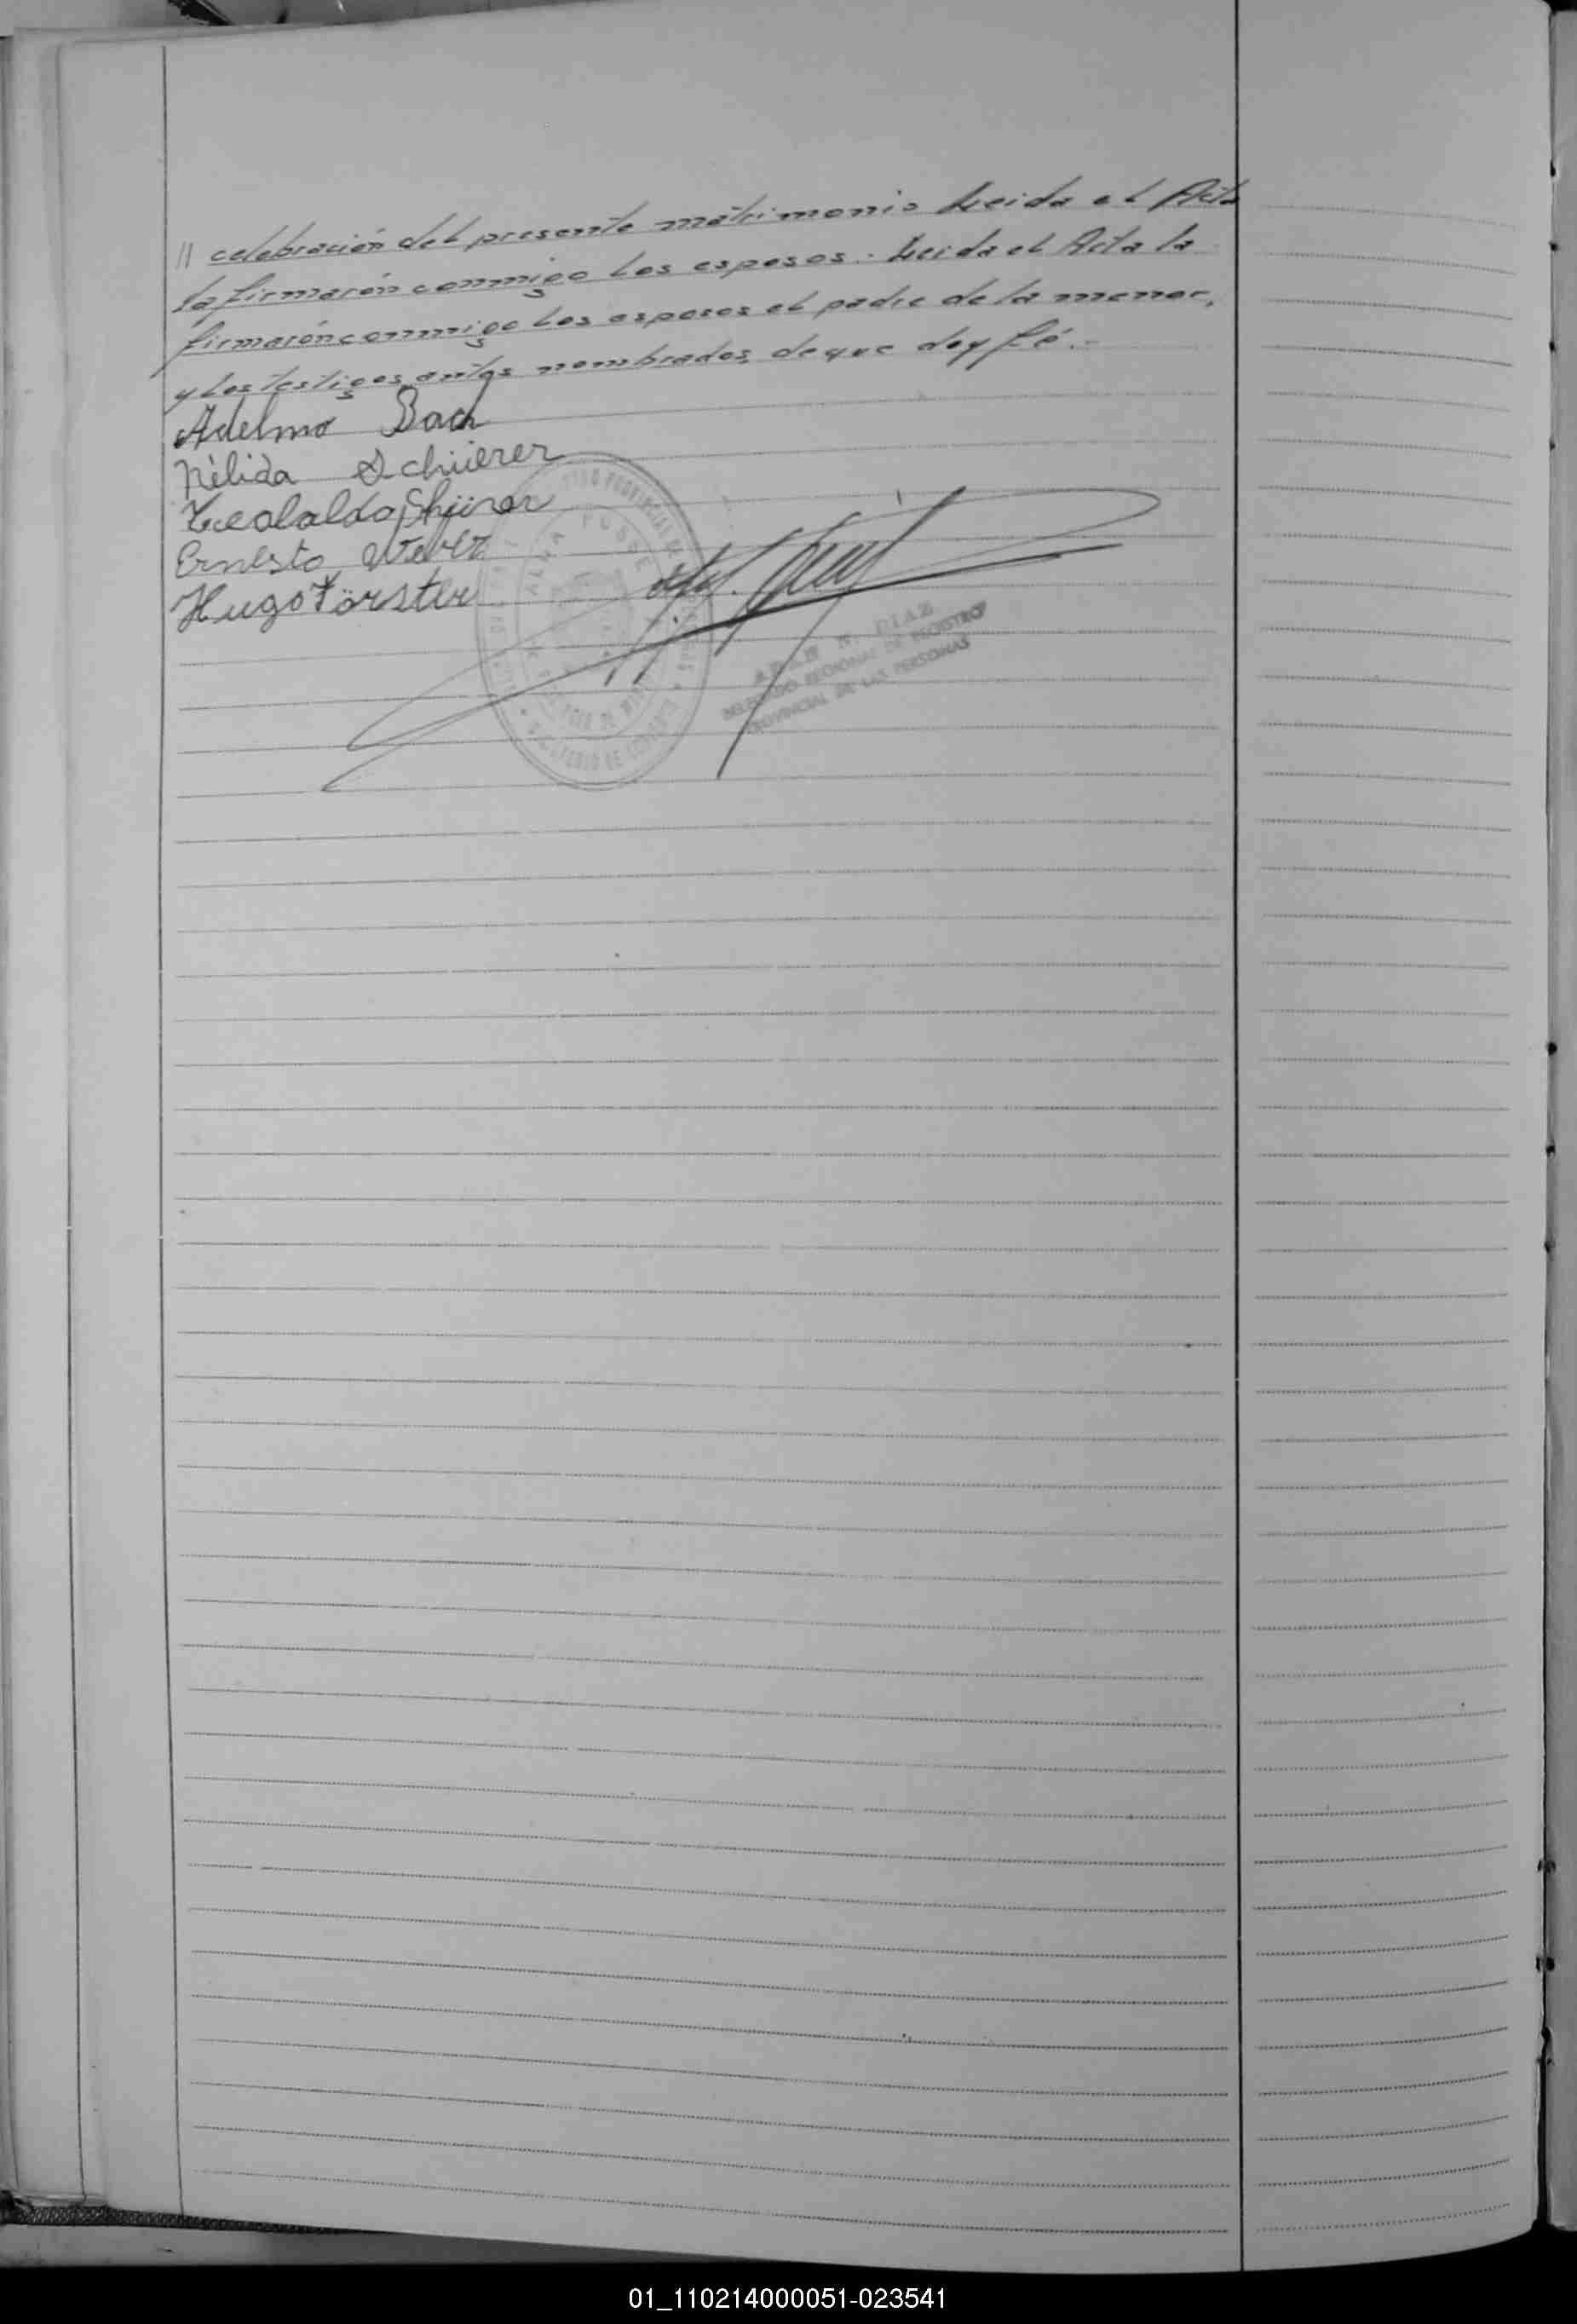 // celebración del presente matrimonio Leida el Acta
la firmarón conmigo los esposos.- Leida el Acta la
firmarón conmigo los esposos el padre de la menor,
y los testigos antes nombrados, de que doy fé.-
Adelmo Bach
Nélida Schüerer
Shürer
Ernesto Weber
Hugo Förster
DIAZ
DELEGADO REGIONAL DE REGISTRO
PROVINCIAL DE LAS PERSONAS
01_110214000051-023541